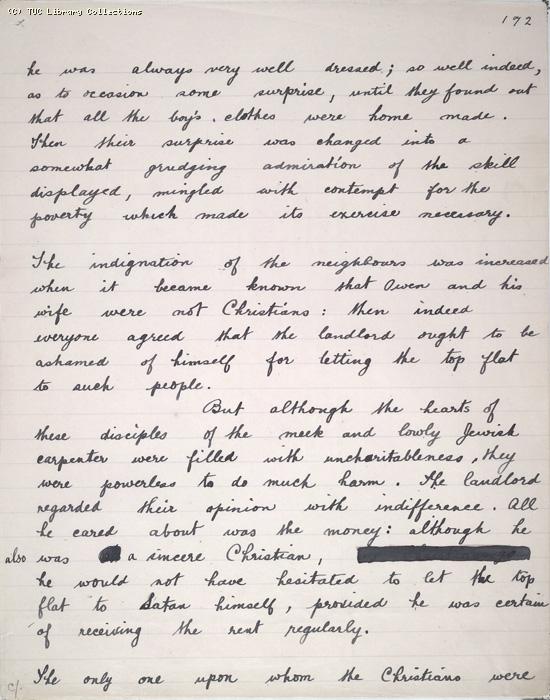 (C) TUC Library Collections
172
he was always very well dressed; so well indeed,
as to occasion some surprise, until they found out
that all the boy's clothes were home made.
Then their surprise was changed into a
somewhat grudging admiration of the skill
displayed, mingled with contempt for the
poverty which made its exercise necessary.
The indignation of the neighbours was increased
when it became known that Owen and his
wife were not Christians: then indeed
everyone agreed that the landlord ought to be
ashamed of himself for letting the top flat
to such people.
But although the hearts of
these disciples of the meek and lowly Jewish
carpenter were filled with uncharitableness, they
were powerless to do much harm. The landlord
regarded their opinion with indifference. All
he cared about was the money: although he
also was a sincere Christian,
he would not have hesitated to let the top
flat to Satan himself, provided he was certain
of receiving the rent regularly.
The only one upon whom the Christians were